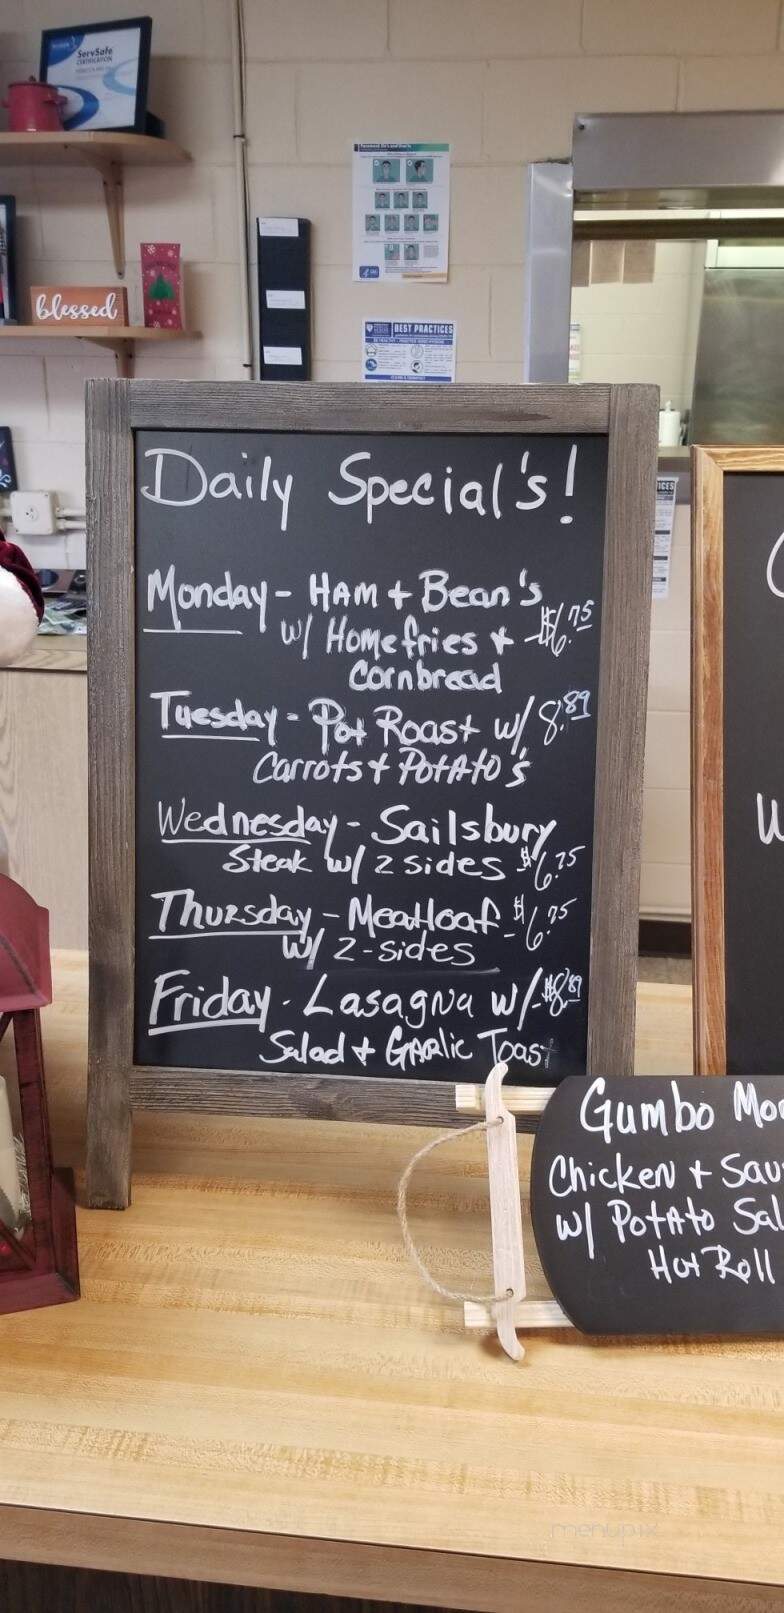 ServSafe
CERTIFICATION
blessed
BEST PRACTICES
Daily Special's!
Monday - HAM + Bean's
w/ Homefries + $6.75
Cornbread
Tuesday - Pot Roast w/ 8.89
Carrots + Potato's
Wednesday - Sailsbury
Steak w/ 2 sides $6.75
Thursday - Meatloaf $6.75
w/ 2-sides
Friday - Lasagna w/ $8.89
Salad + GARlic Toast
Gumbo Mo
Chicken + Sau
w/ Potato Sal
Hot Roll
W
menupix